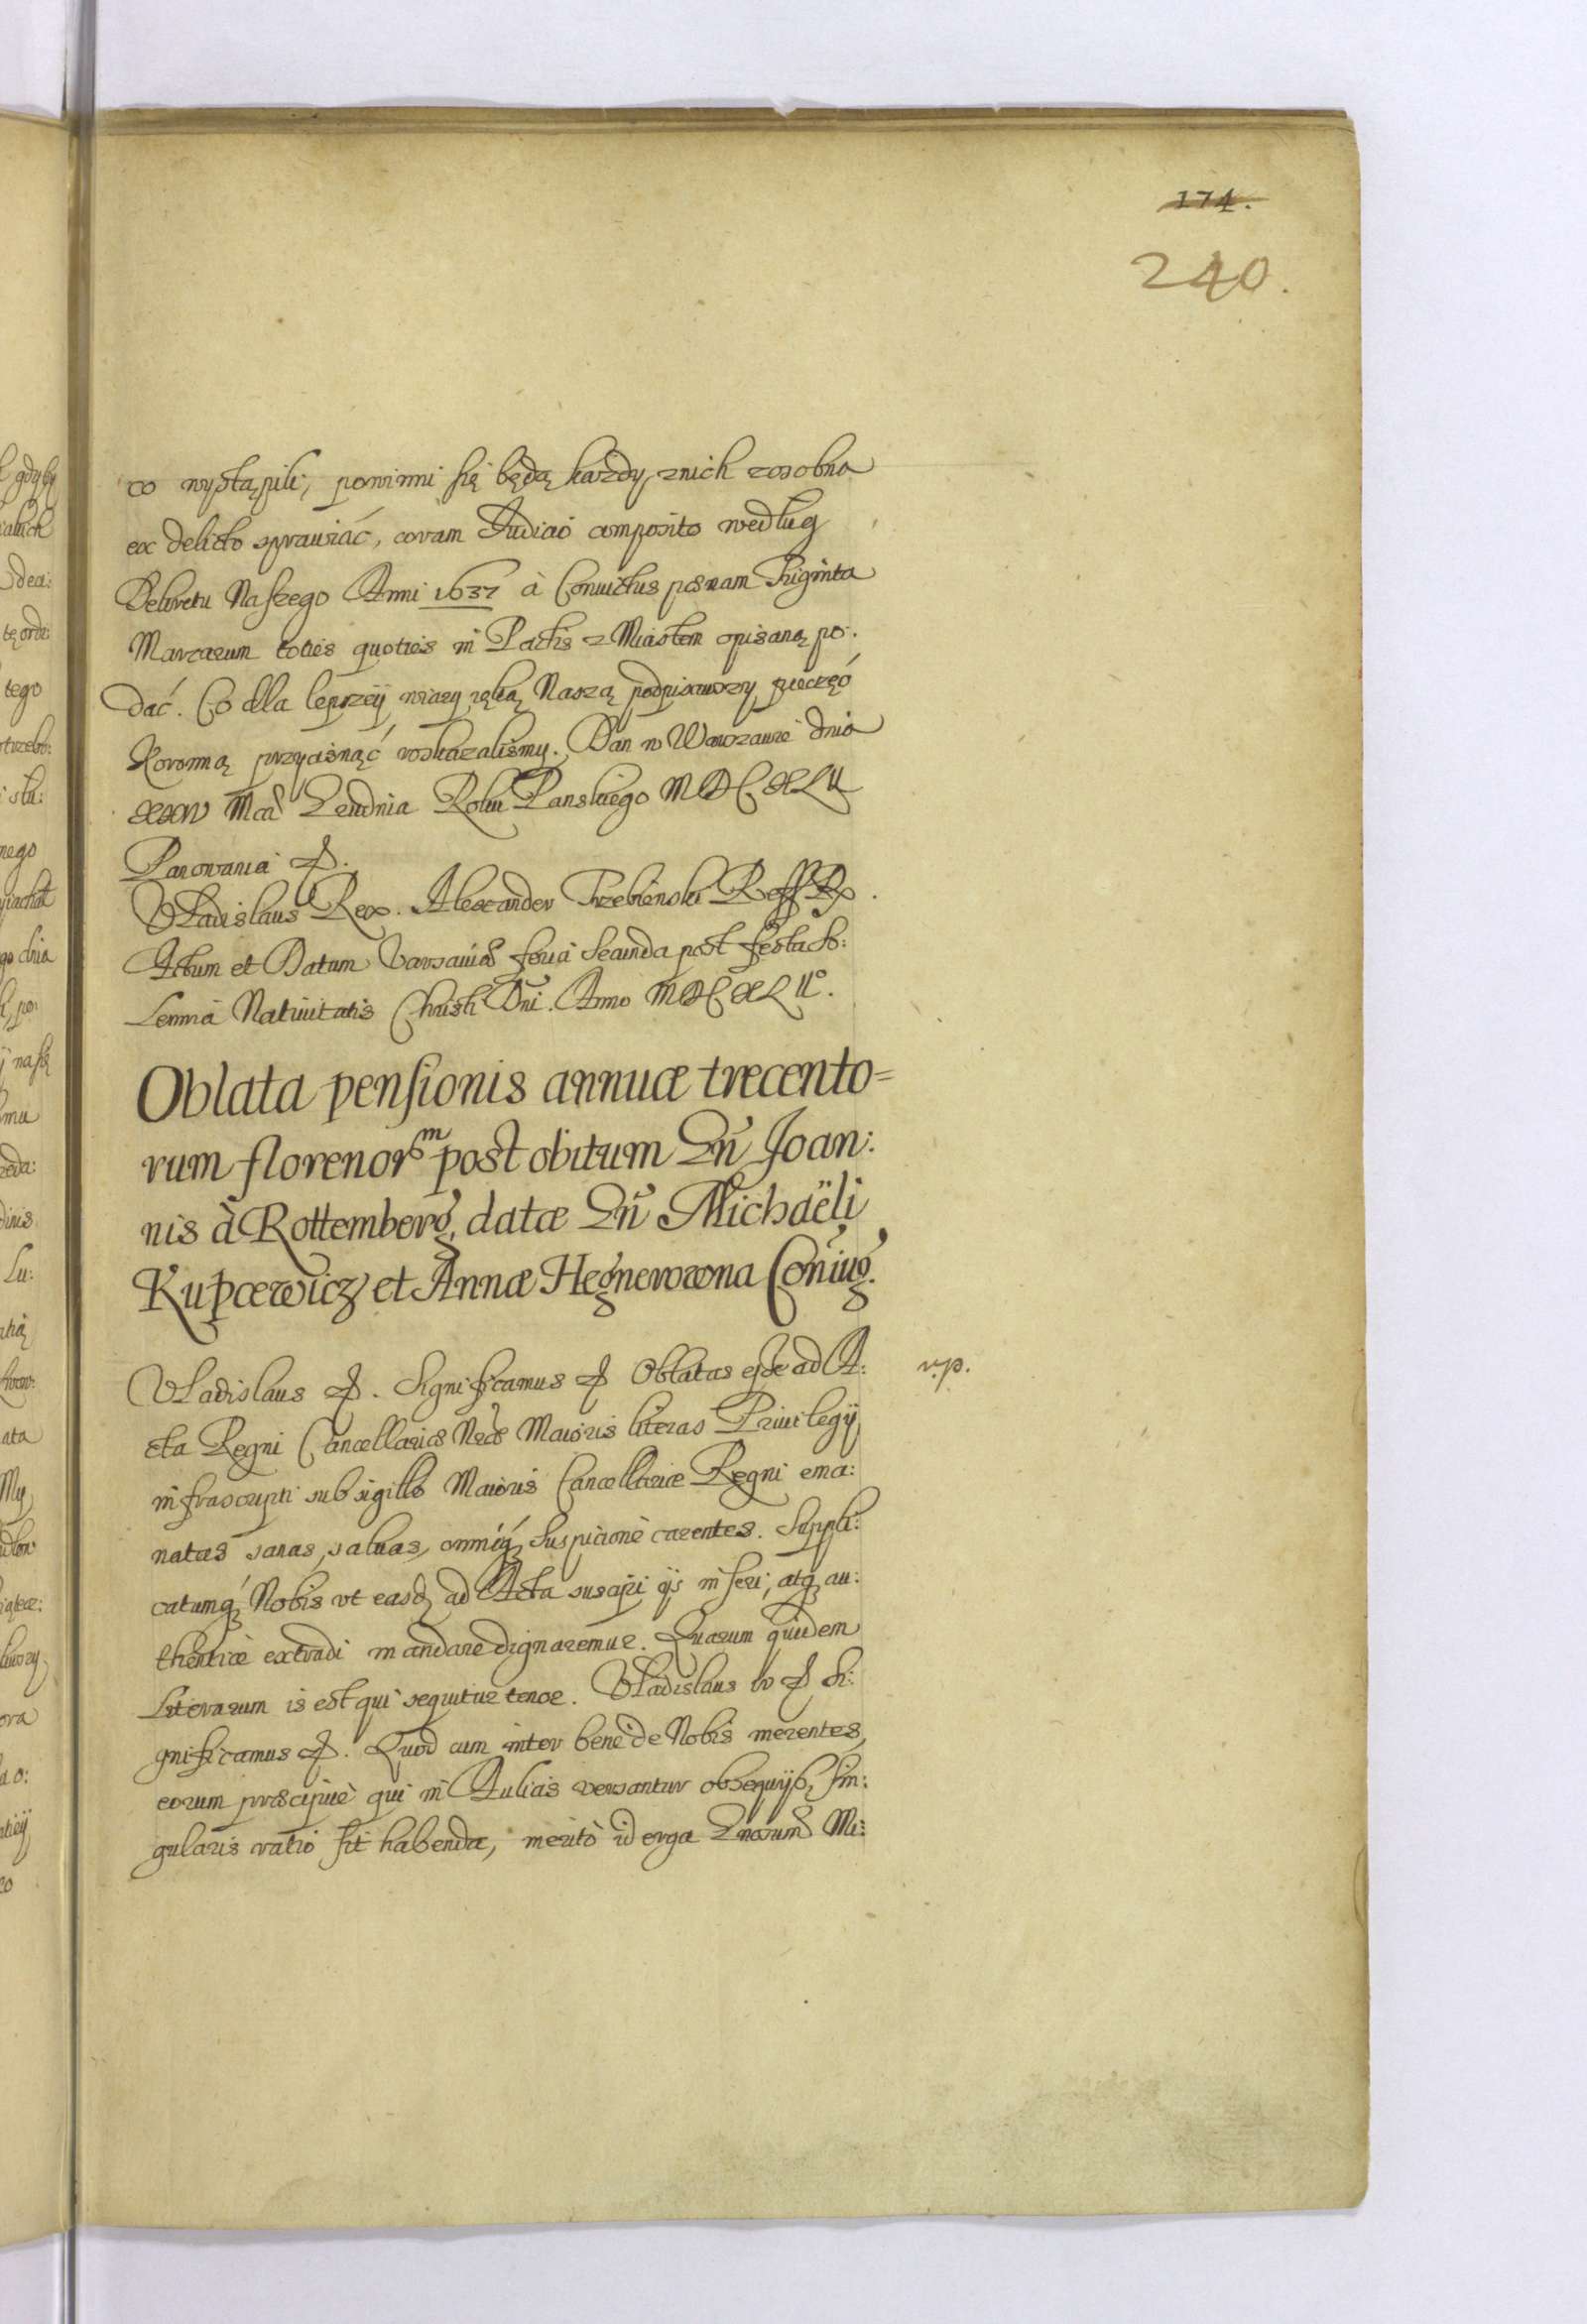 174.
240.
co wystąpili, powinni się będą każdy z nich zosobna
ex delicto sprawiać, coram Judicio composito według
Dekretu Naszego Anni 1637 à Convictus pœnam Triginta
Marcarum toties quoties in Pactis z Miastem opisaną po:
dać. Co dla lepszey wiary ręką Naszą podpisawszy pieczęć
Koronną przycisnąć roskazalismy. Dan w Warszawie dnia
Grudnia Roku Panskiego MDCXLII
Panowania &.
Vladislaus Rex. Alexander Trzebienski
Actum et Datum Varsaviæ feria Secunda post festa So:
lennia Nativitatis Christi Dni. Anno MDCXLIIº.
Oblata pensionis annuæ trecento=
rum florenorm post obitum Gñ Joan:
nis à Rottemberg, datæ Gñ Michaëli
Kupcewicz et Annæ Hegnerowna Coniug.
Vladislaus &. Significamus & Oblatas esse ad A: r.p.
cta Regni Cancellariæ Nræ Maioris literas Privilegÿ
infrascripti sub sigillo Maioris Cancellariæ Regni ema:
natas sanas, salvas, omniq, suspicione carentes. Suppli:
catumq, Nobis vt easd, ad Acta suscipi ijs inseri, atq, au:
thentice extradi mandare dignaremur. Quarum quidem
Literarum is est qui sequitur tenor. Vladislaus IV & Si:
gnificamus &. Quod cum inter bene de Nobis merentes,
eorum præcipuè qui in Aulicis versantur obsequijs, sin:
gularis ratio sit habenda, meritò id erga Gnorum Mi: